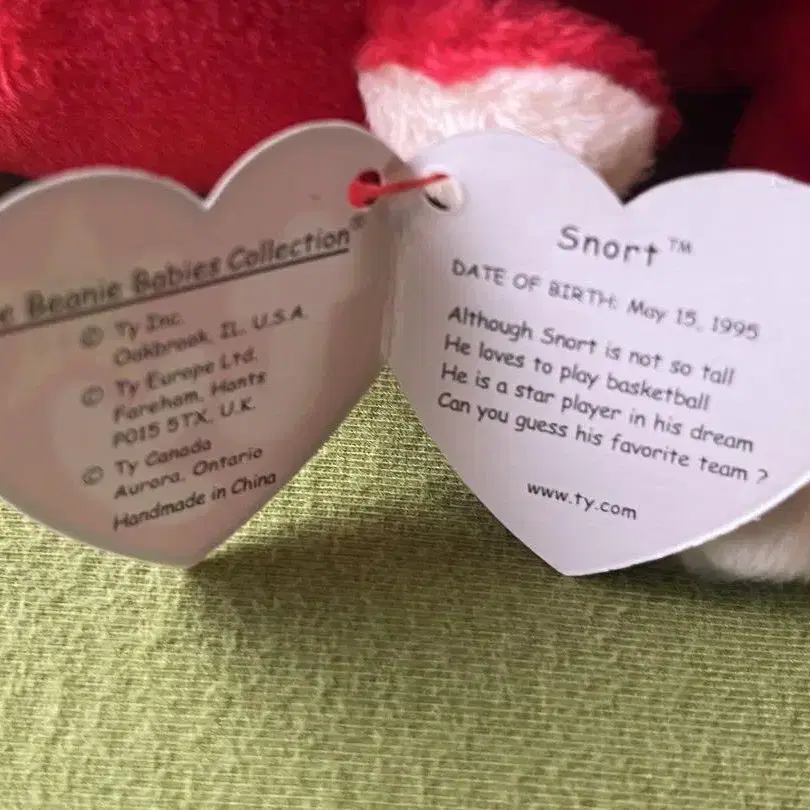 e Beanie Babies Collection®
© Ty Inc.
Oakbrook, IL, U.S.A.
© Ty Europe Ltd.
Fareham, Hants
PO15 5TX, U.K.
© Ty Canada
Aurora, Ontario
Handmade in China
Snort™
DATE OF BIRTH: May 15, 1995
Although Snort is not so tall
He loves to play basketball
He is a star player in his dream
Can you guess his favorite team ?
www.ty.com